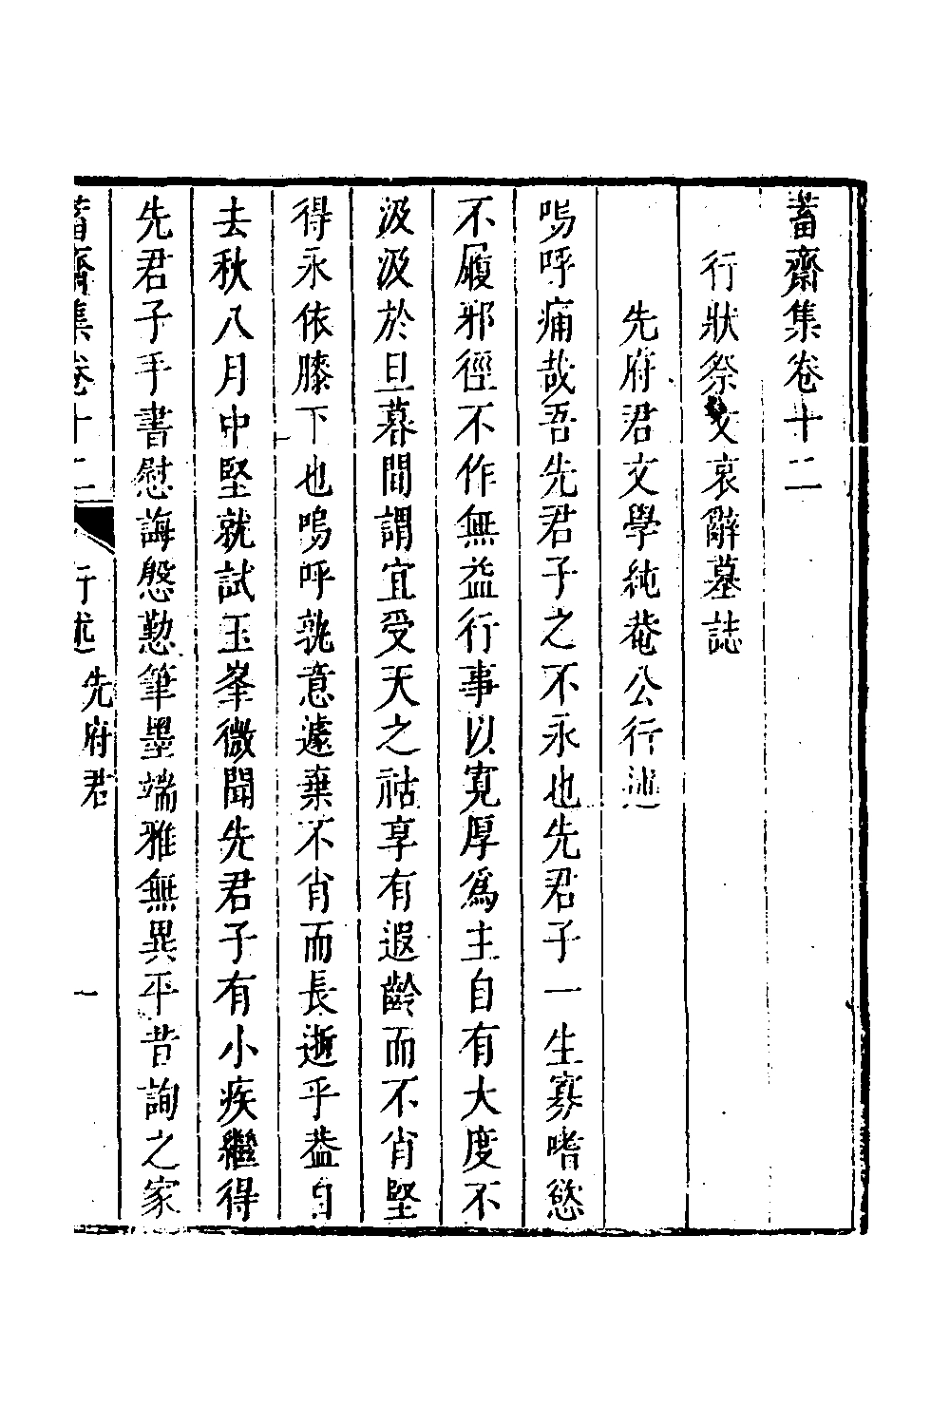 蓄齋集卷十二
行狀祭文哀辭墓誌
先府君文學純菴公行述
嗚呼痛哉吾先君子之不永也先君子一生寡嗜慾
不履邪徑不作無益行事以寛厚爲主自有大度不
汲汲於旦暮間謂宜受天之祜享有遐齡而不肖堅
得永依膝下也嗚呼孰意遽棄不肖而長逝乎葢自
去秋八月中堅就試玉峯微聞先君子有小疾繼得
先君子手書慰誨慇懃筆墨端雅無異平昔詢之家
蓄齋集卷十二 行述 先府君 一